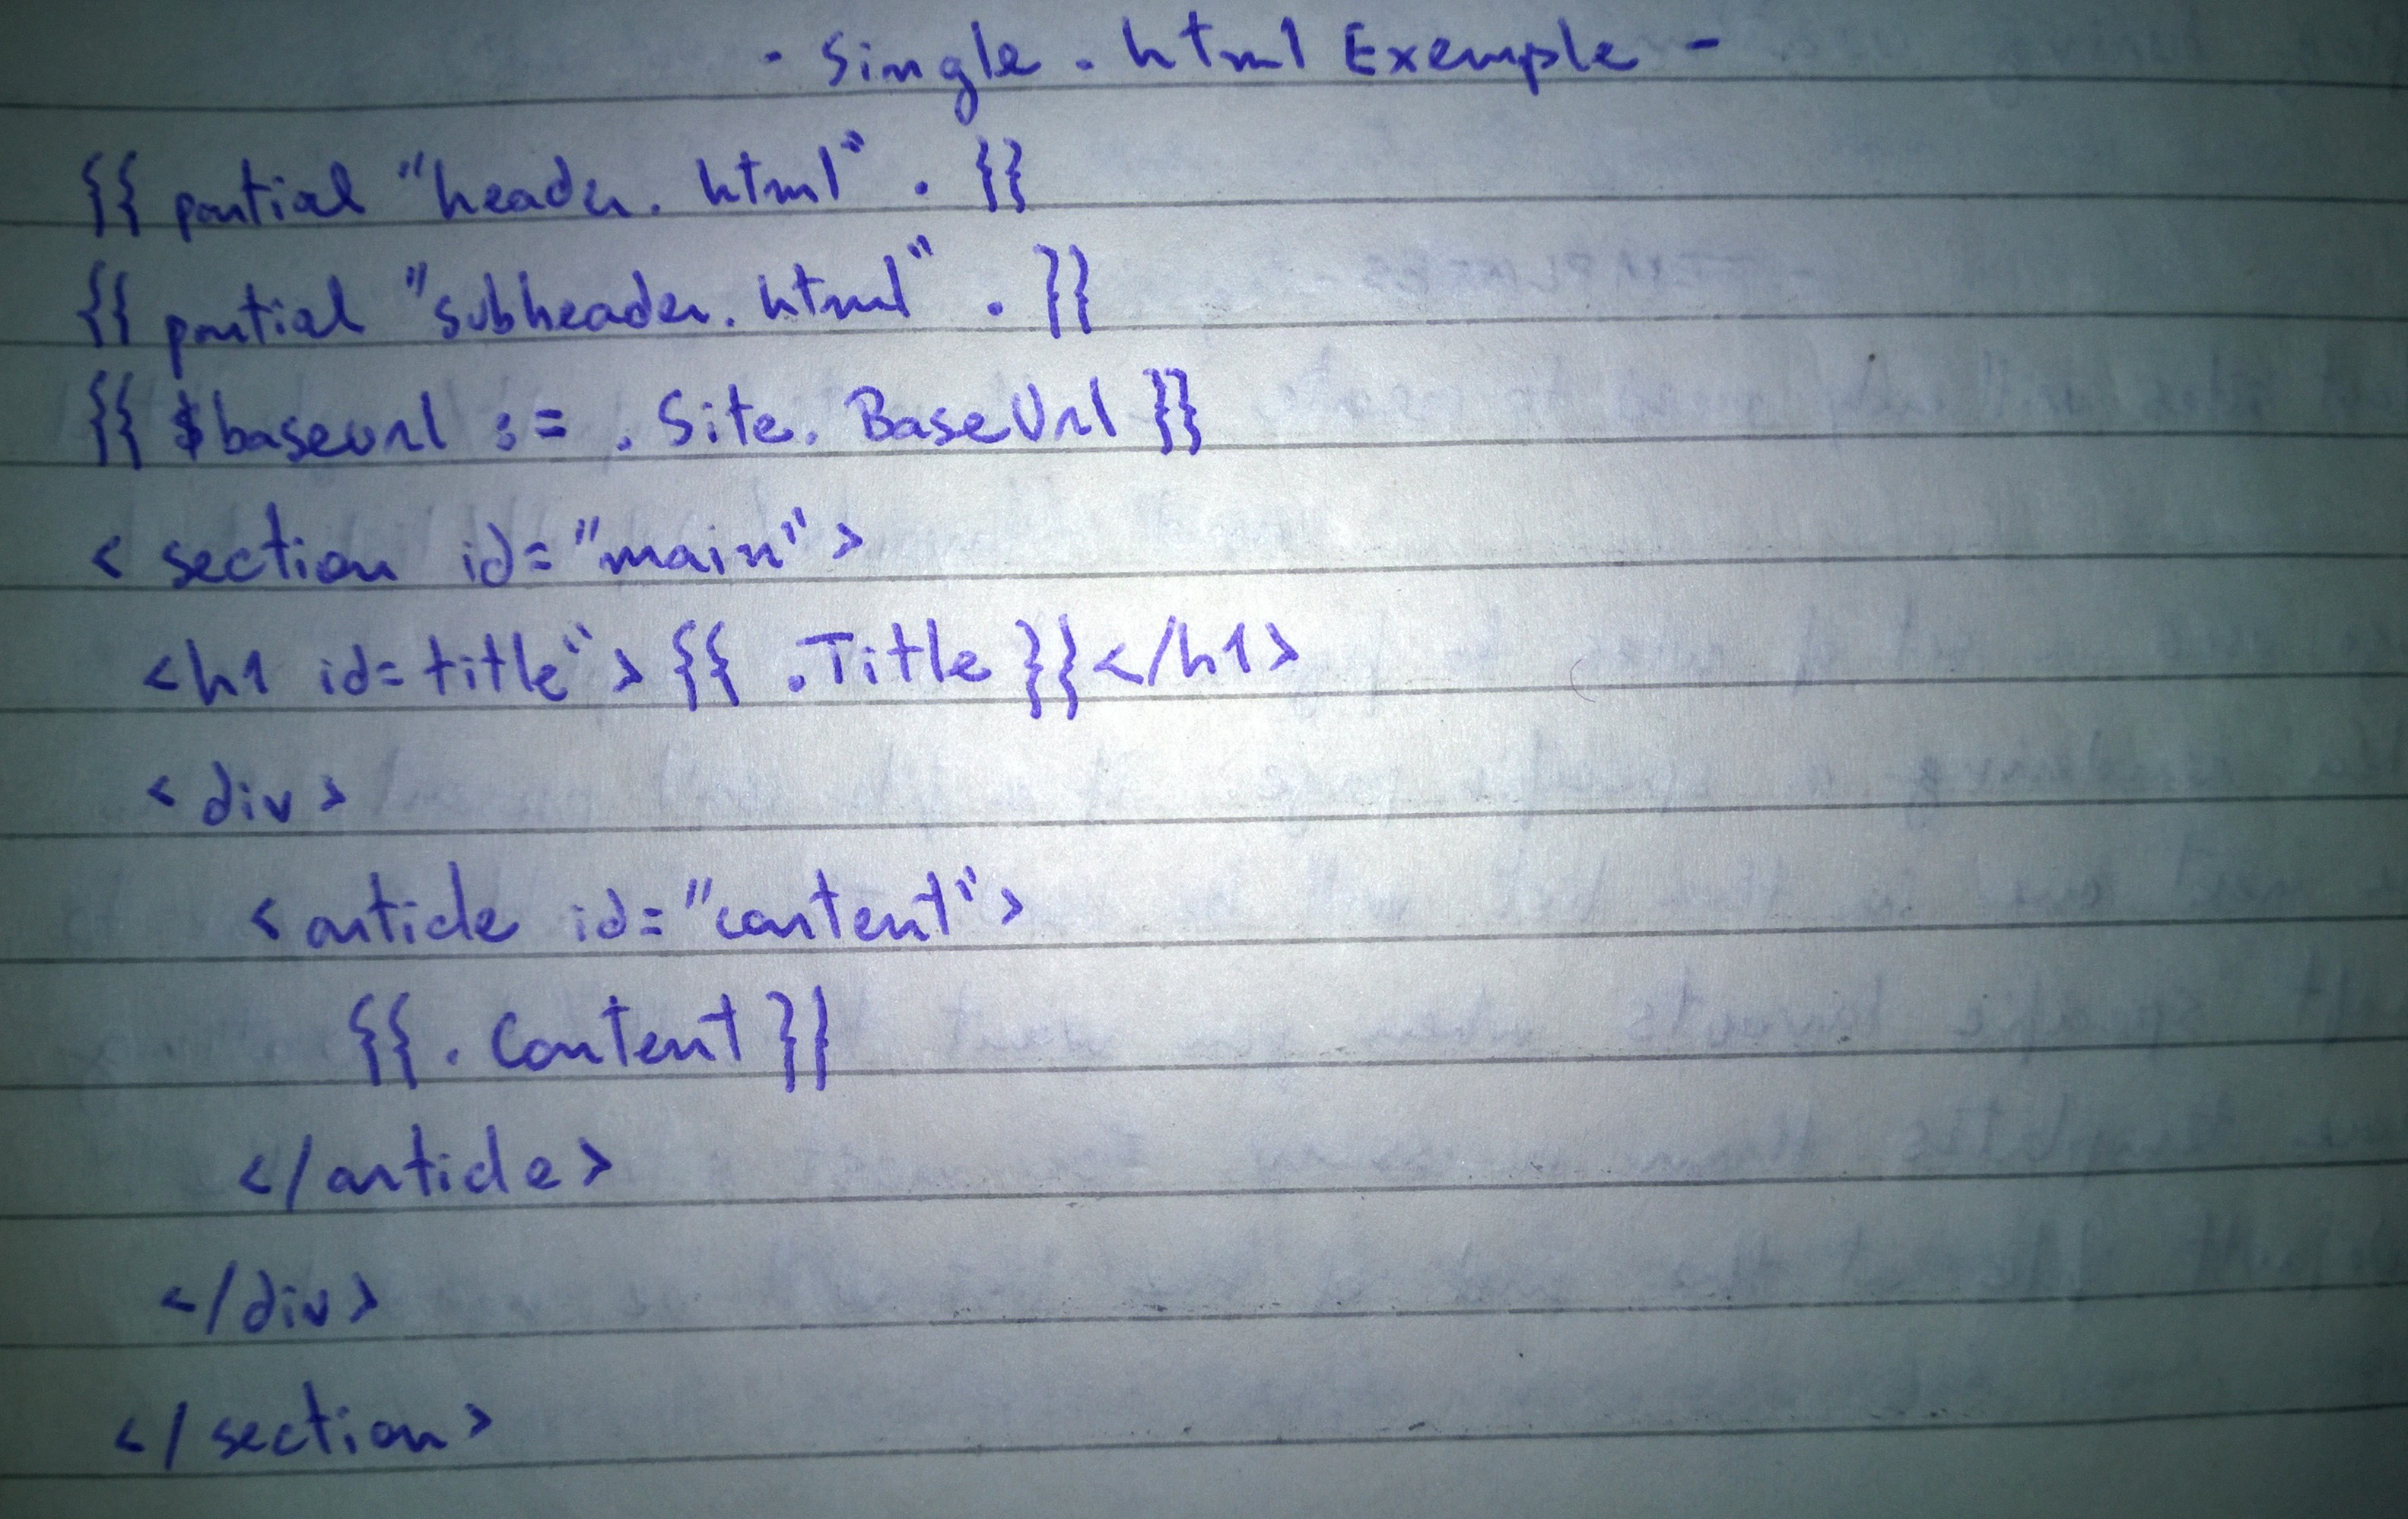 - Single.html Exemple -
{{ partial "header.html" . }}
{{ partial "subheader.html" . }}
{{ $baseurl := .Site.BaseUrl }}
< section id="main">
<h1 id=title"> {{ .Title }}</h1>
<div>
<article id="content">
{{ .Content }}
</article>
</div>
</section>